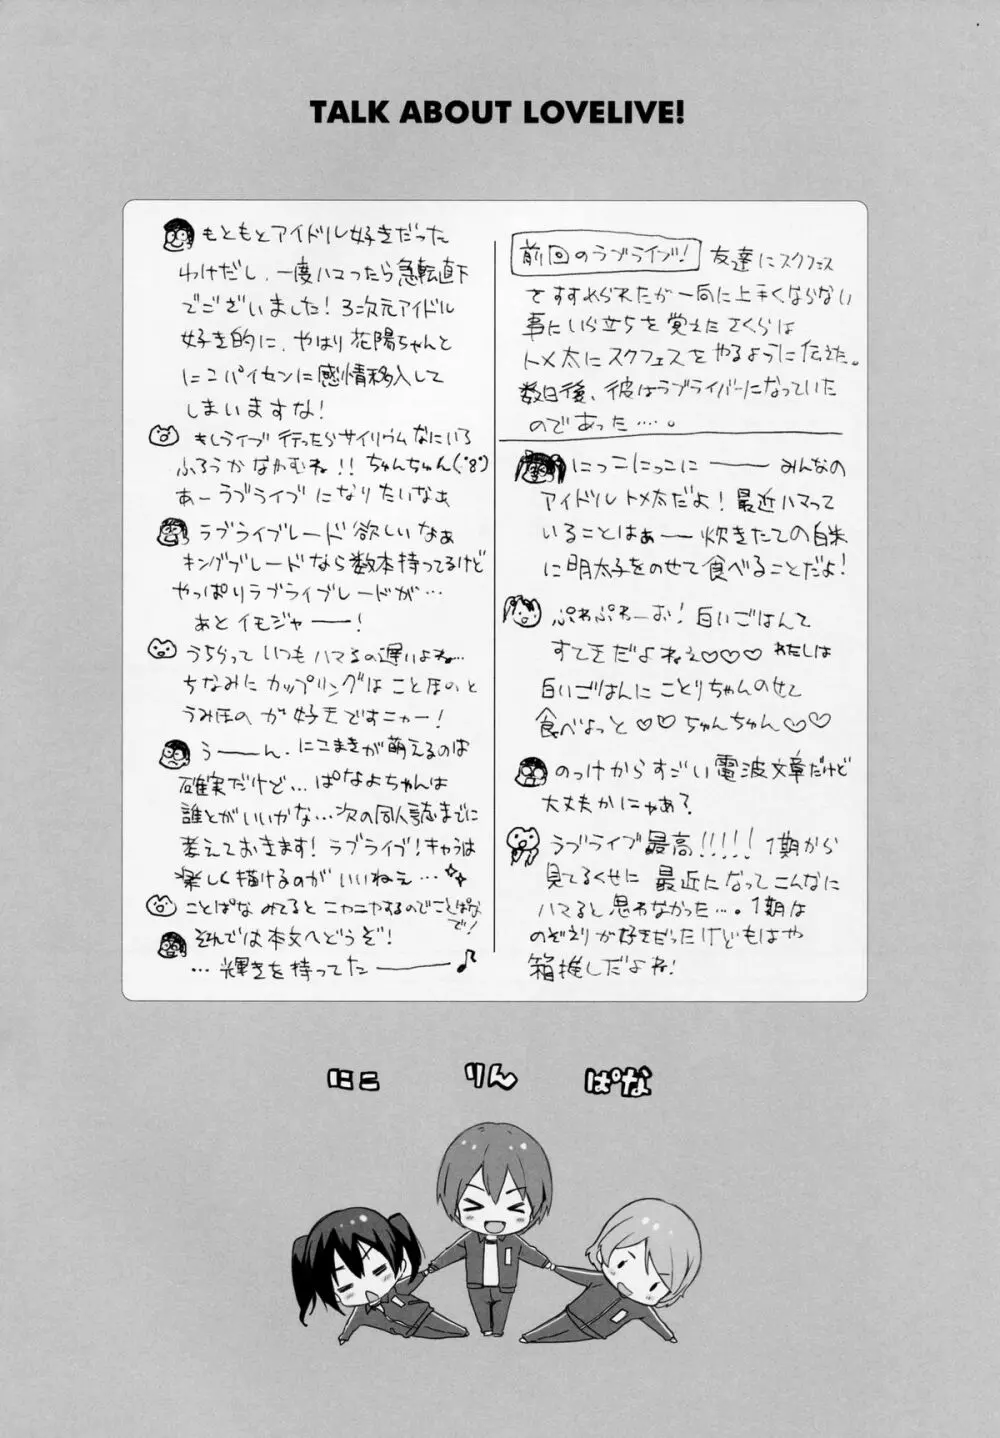 TALK ABOUT LOVELIVE!
前回のラブライブ! 友達にスクフェス
をすすめられたが一向に上手くならない
事にいら立ちを覚えたさくらは
トメ太にスクフェスをやるように伝えた。
数日後、彼はラブライバーになっていた
のであった‥‥。
にっこにっこにーーー みんなの
アイドルトメ太だよ! 最近ハマって
いることはぁーー 炊きたての白米
に明太子をのせて食べることだよ!
ぷわぷわーお! 白いごはんて
すてきだよねぇ♡♡♡ わたしは
白いごはんにことりちゃんのせて
食べよっと♡♡ ちゅんちゅん♡♡
のっけからすごい電波文章だけど
大丈夫かにゃあ?
ラブライブ最高!!!!! 1期から
見てるくせに最近になってこんなに
ハマると思わなかった…。1期は
のぞえりが好きだったけどもはや
箱推しだよね!
もともとアイドル好きだった
わけだし、一度ハマったら急転直下
でございました! 3次元アイドル
好き的に、やはり花陽ちゃんと
にこパイセンに感情移入して
しまいますな!
もしライブ行ったらサイリウムなにいろ
ふろうかなかむね!! ちゅんちゅん(・8・)
あーラブライブになりたいなぁ
ラブライブレード欲しいなぁ
キングブレードなら数本持ってるけど
やっぱりラブライブレードが…
あとイモジャーー!
うちらっていつもハマるの遅いよね…
ちなみにカップリングはことほのと
うみほのが好きですニャー!
うーーん、にこまきが萌えるのは
確実だけど…ぱなよちゃんは
誰とがいいかな…次の同人誌までに
考えておきます! ラブライブ!キャラは
楽しく描けるのがいいねぇ…
ことぱなみてるとニヤニヤするのでことぱな
で!
それでは本文へどうぞ!
…輝きを持ってたーーー♪
にこ りん ぱな